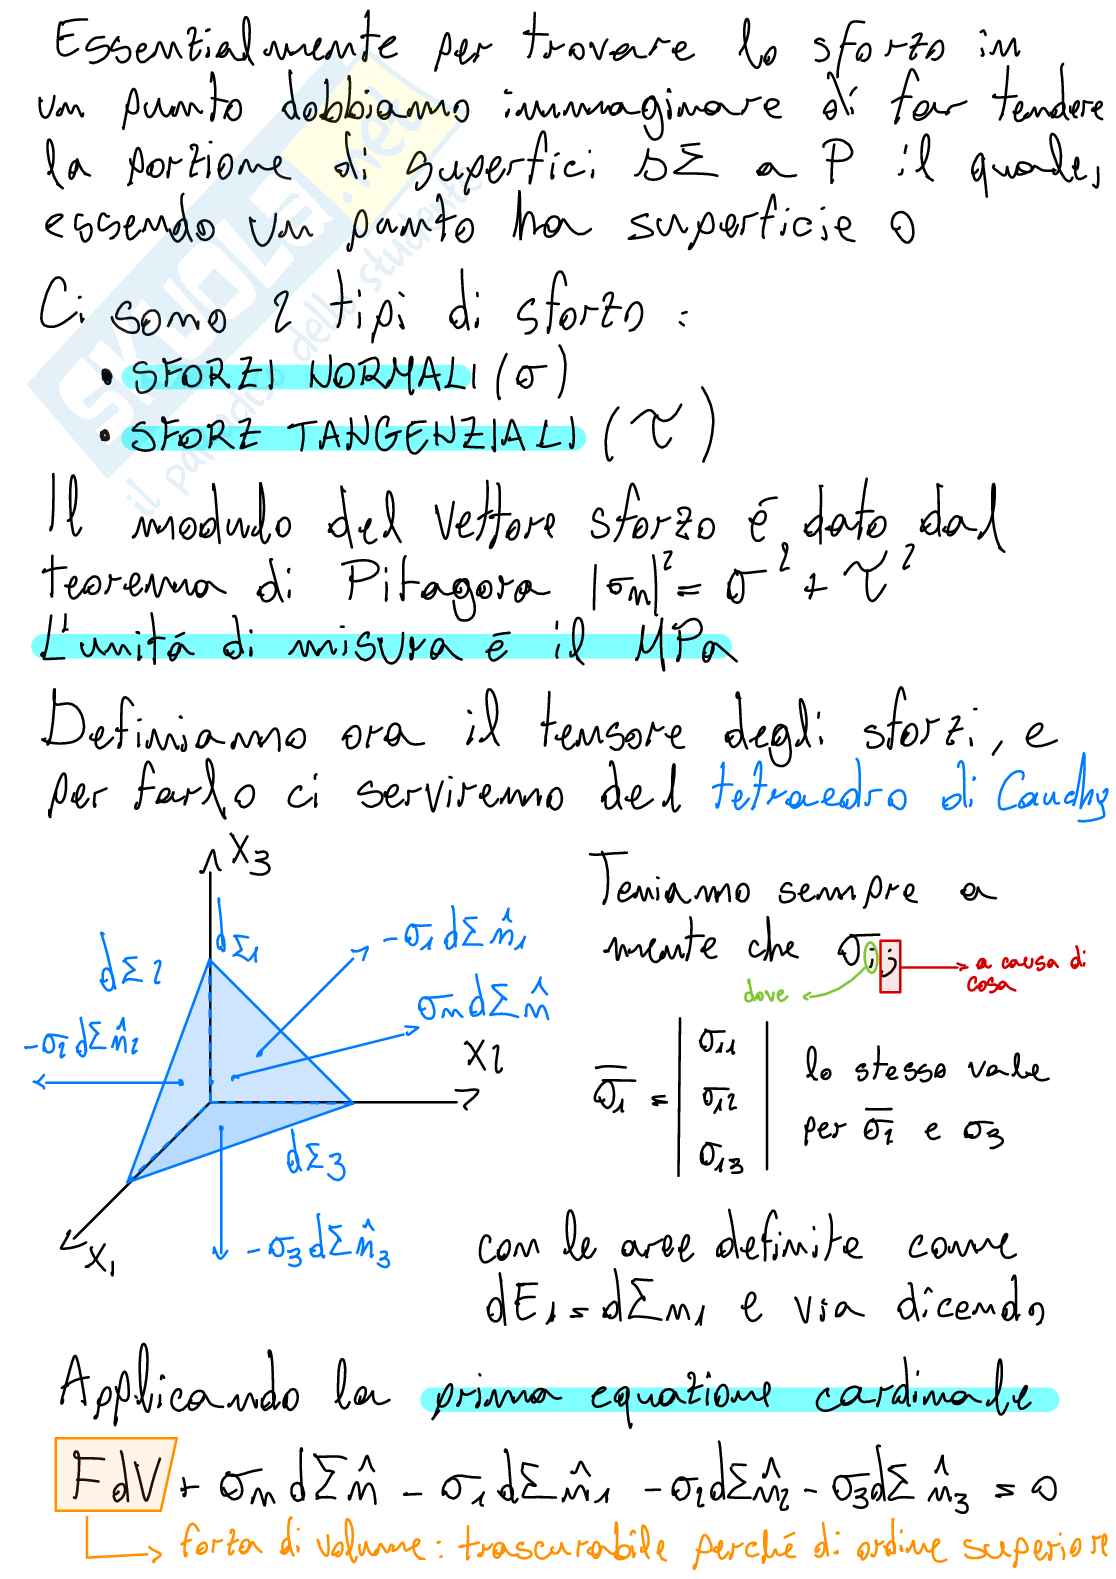 Essenzialmente per trovare lo sforzo in
un punto dobbiamo immaginare di far tendere
la porzione di superfici ΔΣ a P il quale,
essendo un punto ha superficie 0
Ci sono 2 tipi di sforzo :
• SFORZI NORMALI (σ)
• SFORZ TANGENZIALI (τ)
Il modulo del vettore sforzo é dato dal
teorema di Pitagora |σn|² = σ² + τ²
L'unitá di misura é il MPa
Definiamo ora il tensore degli sforzi, e
per farlo ci serviremo del tetraedro di Cauchy
X3
dΣ1
-σ1 dΣ n̂1
dΣ2
σn dΣ n̂
-σ2 dΣ n̂2
X2
dΣ3
-σ3 dΣ n̂3
X1
Teniamo sempre a
mente che σij
a causa di
cosa
dove
σ̅1 = | σ11 σ12 σ13 |
lo stesso vale
per σ̅2 e σ3
con le aree definite come
dE1 = dΣn1 e via dicendo
Applicando la prima equazione cardinale
FdV + σn dΣ n̂ - σ1 dΣ n̂1 - σ2 dΣ n̂2 - σ3 dΣ n̂3 = 0
forza di volume : trascurabile perché di ordine superiore
SKUOLA.net
il paradiso dello studente